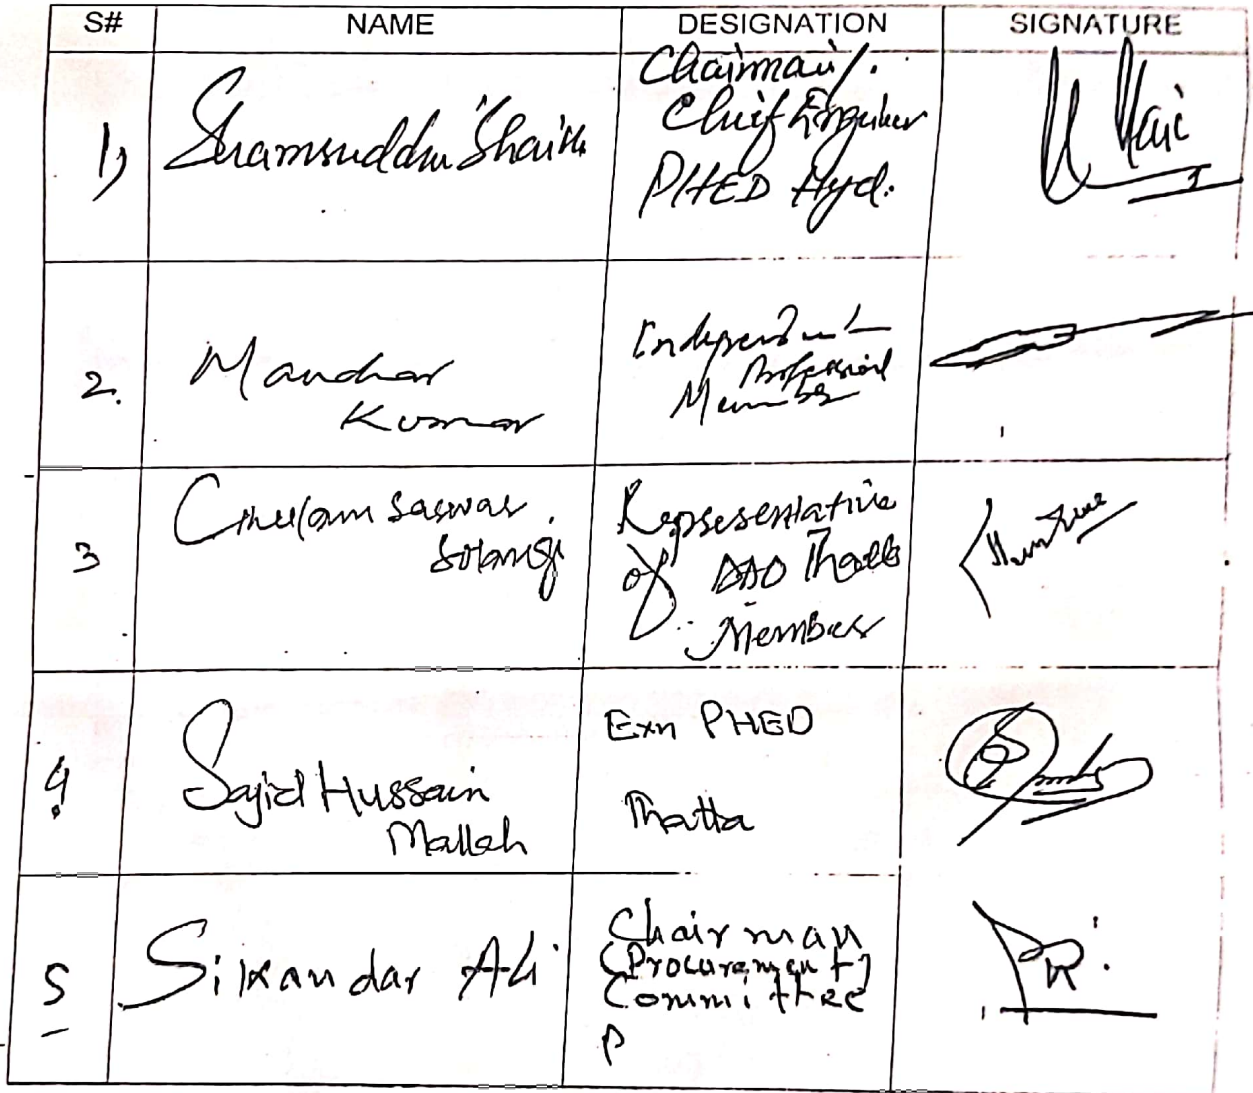 S# NAME DESIGNATION SIGNATURE
1) Shamsuddin Shaikh Chairman/.
Chief Engineer
PHED Hyd.
2. Manohar
Kumar
Independent
Professional
Member
3 Ghulam Sarwar
Solangi
Representative
of DAO Thatta
Member
4 Sajid Hussain
Mallah
Exn PHED
Thatta
5 Sikandar Ali
Chairman
(Procurement)
Committee